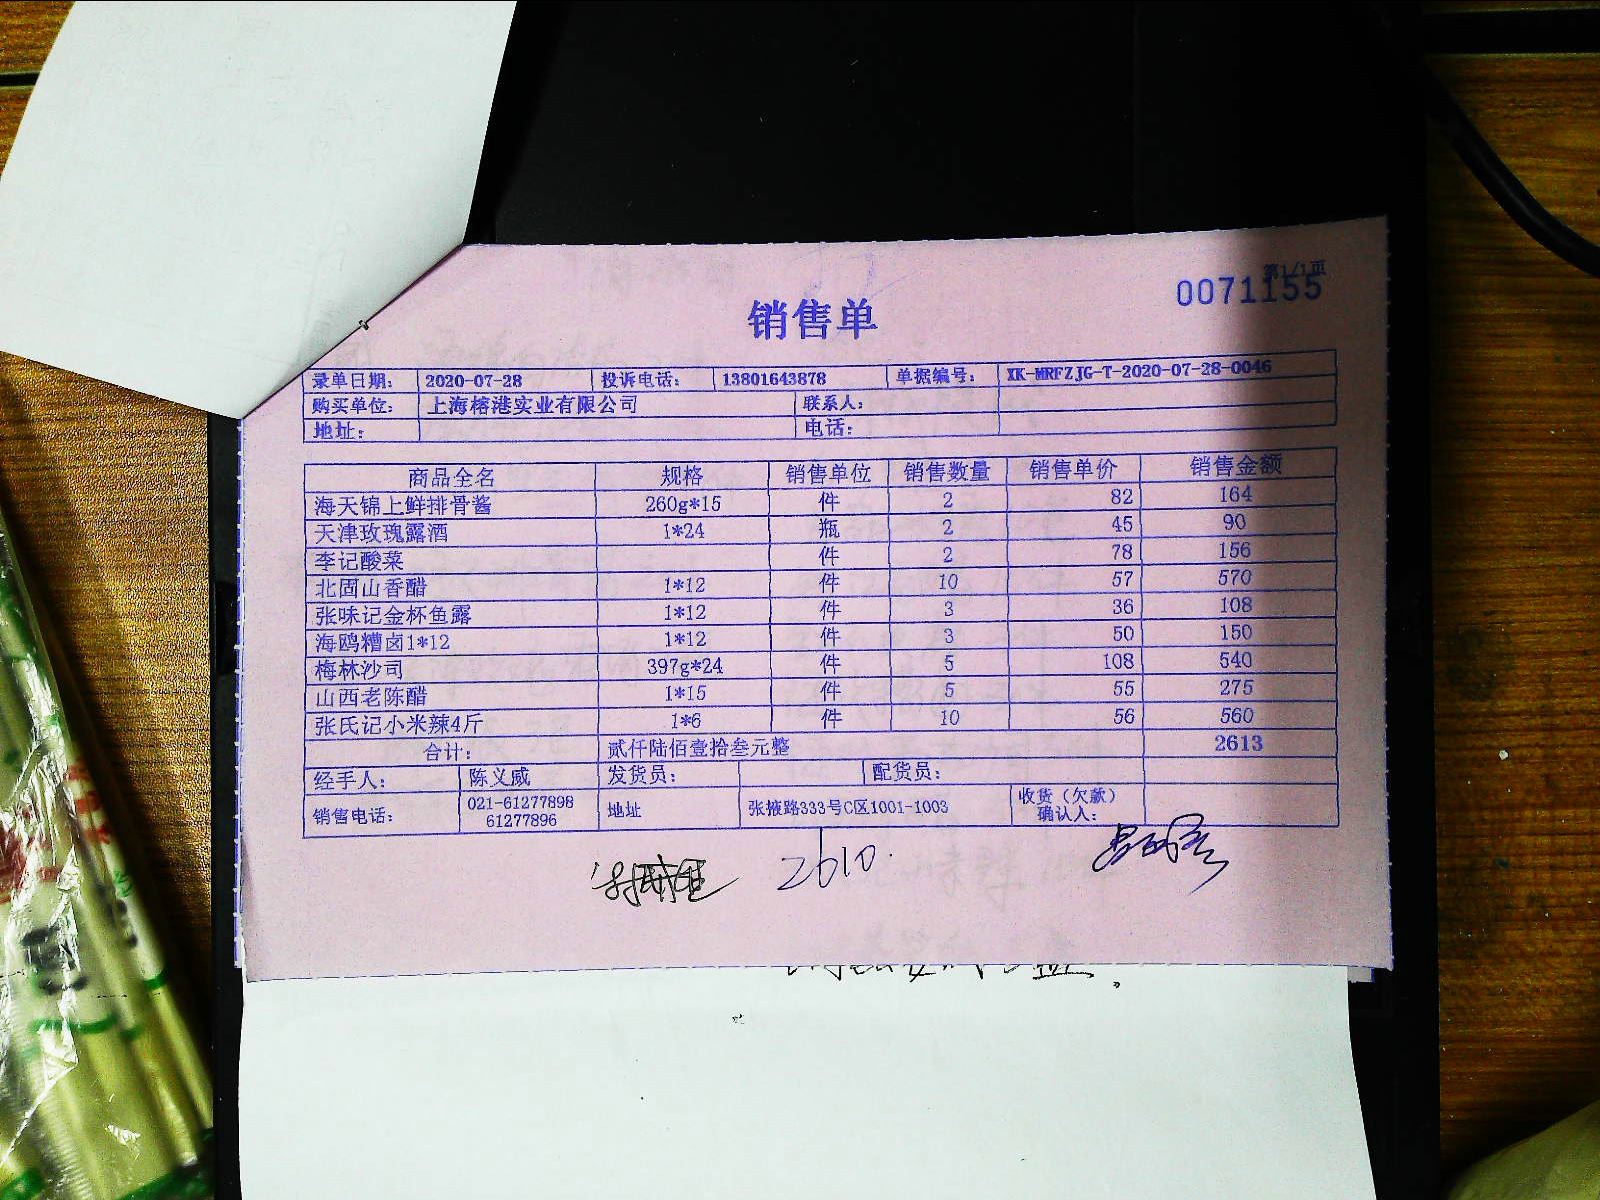 第1/1页
0071155
销售单
录单日期: 2020-07-28 投诉电话: 13801643878 单据编号: XK-MRFZJG-T-2020-07-28-0046
购买单位: 上海榕港实业有限公司 联系人:
地址: 电话:
商品全名 规格 销售单位 销售数量 销售单价 销售金额
海天锦上鲜排骨酱 260g*15 件 2 82 164
天津玫瑰露酒 1*24 瓶 2 45 90
李记酸菜 件 2 78 156
北固山香醋 1*12 件 10 57 570
张味记金杯鱼露 1*12 件 3 36 108
海鸥糟卤1*12 1*12 件 3 50 150
梅林沙司 397g*24 件 5 108 540
山西老陈醋 1*15 件 5 55 275
张氏记小米辣4斤 1*6 件 10 56 560
合计: 贰仟陆佰壹拾叁元整 2613
经手人: 陈义威 发货员: 配货员:
销售电话: 021-61277898 61277896 地址 张掖路333号C区1001-1003 收货（欠款）确认人:
2610.